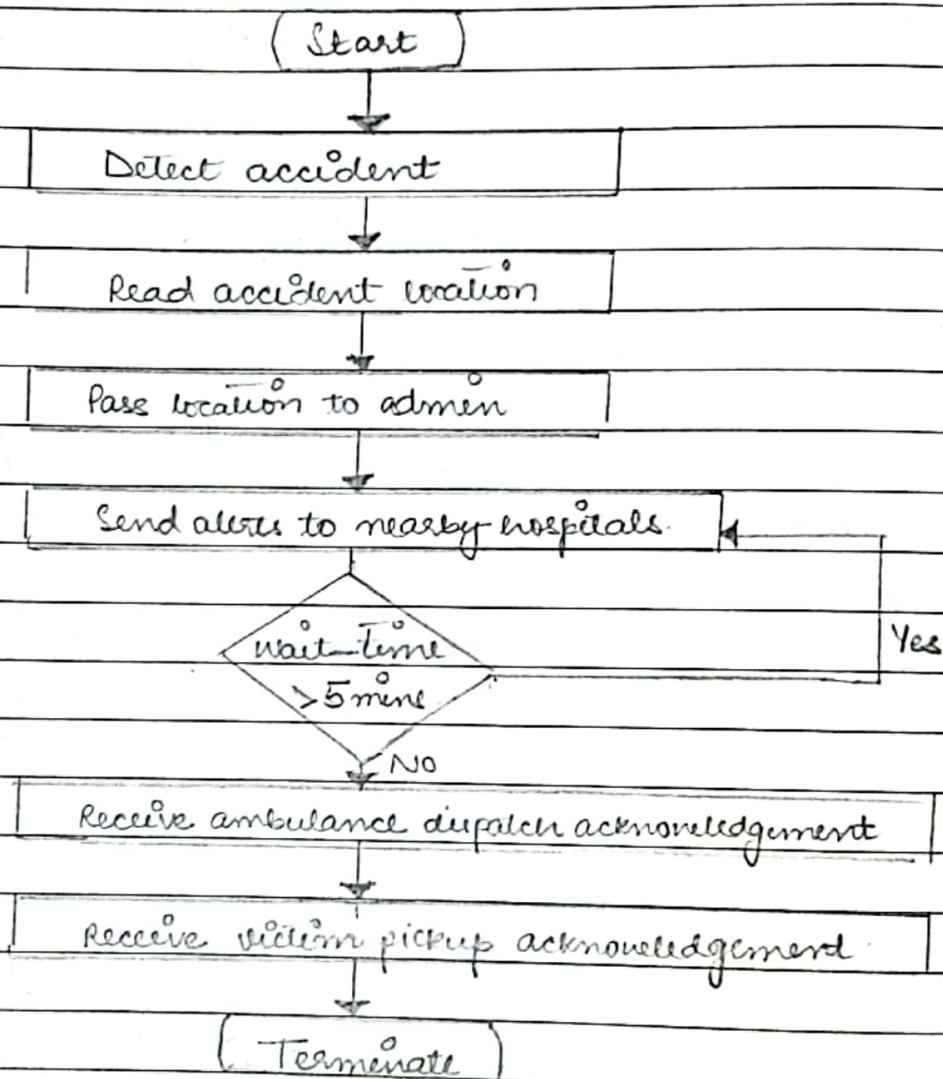 Start
Detect accident
Read accident location
Pass location to admin
Send alerts to nearby hospitals.
wait time
>5 mins
Yes
NO
Receive ambulance dispatch acknowledgement
Receive victim pickup acknowledgement
Terminate